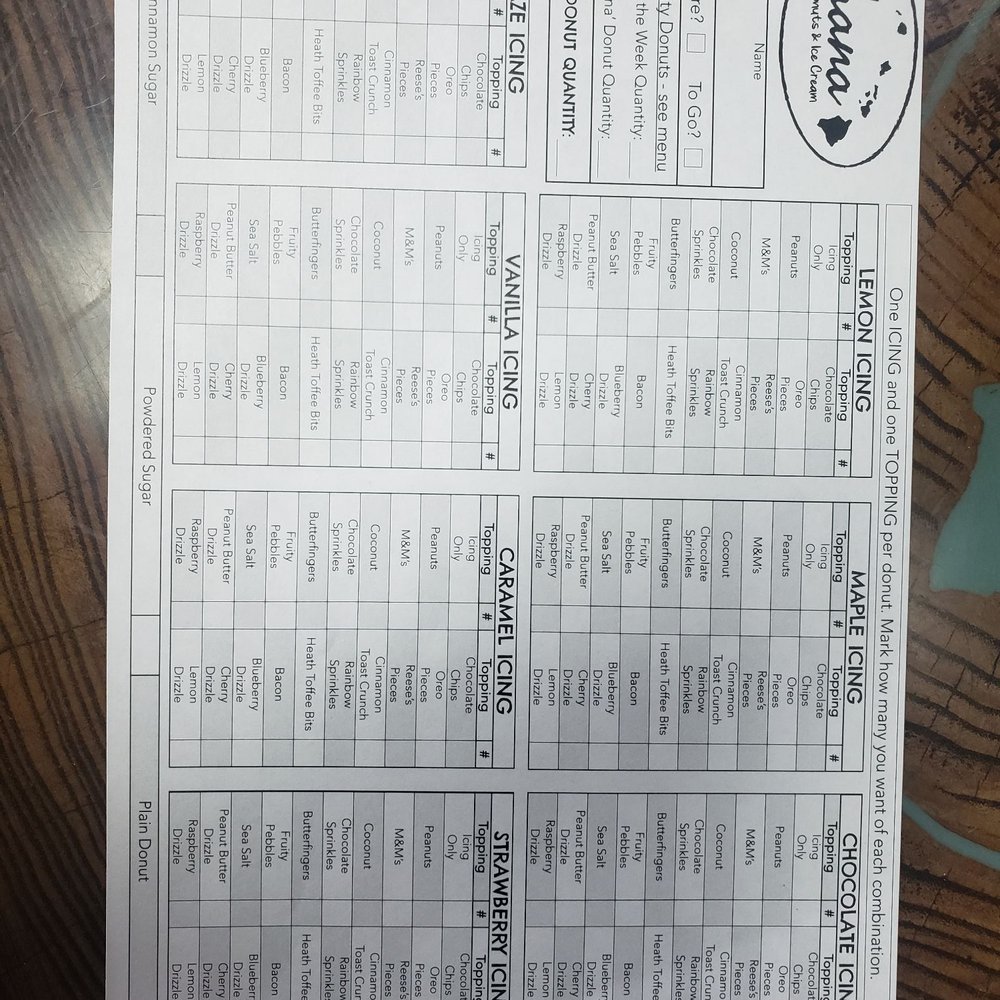 ana
nuts & Ice Cream
Name
re? To Go?
ty Donuts - see menu
the Week Quantity:
na' Donut Quantity:
DONUT QUANTITY:
One ICING and one TOPPING per donut. Mark how many you want of each combination.
LEMON ICING
Topping # Topping #
Icing
Only
Peanuts
M&M's
Coconut
Chocolate
Sprinkles
Butterfingers
Fruity
Pebbles
Sea Salt
Peanut Butter
Drizzle
Raspberry
Drizzle
Chocolate
Chips
Oreo
Pieces
Reese's
Pieces
Cinnamon
Toast Crunch
Rainbow
Sprinkles
Heath Toffee Bits
Bacon
Blueberry
Drizzle
Cherry
Drizzle
Lemon
Drizzle
MAPLE ICING
Topping # Topping #
Icing
Only
Peanuts
M&M's
Coconut
Chocolate
Sprinkles
Butterfingers
Fruity
Pebbles
Sea Salt
Peanut Butter
Drizzle
Raspberry
Drizzle
Chocolate
Chips
Oreo
Pieces
Reese's
Pieces
Cinnamon
Toast Crunch
Rainbow
Sprinkles
Heath Toffee Bits
Bacon
Blueberry
Drizzle
Cherry
Drizzle
Lemon
Drizzle
CHOCOLATE ICIN
Topping # Topping
Icing
Only
Peanuts
M&M's
Coconut
Chocolate
Sprinkles
Butterfingers
Fruity
Pebbles
Sea Salt
Peanut Butter
Drizzle
Raspberry
Drizzle
Chocola
Chips
Oreo
Pieces
Reese's
Pieces
Cinnamo
Toast Crunc
Rainbow
Sprinkles
Heath Toffee
Bacon
Blueberry
Drizzle
Cherry
Drizzle
Lemon
Drizzle
ZE ICING
# Topping #
Chocolate
Chips
Oreo
Pieces
Reese's
Pieces
Cinnamon
Toast Crunch
Rainbow
Sprinkles
Heath Toffee Bits
Bacon
Blueberry
Drizzle
Cherry
Drizzle
Lemon
Drizzle
VANILLA ICING
Topping # Topping #
Icing
Only
Peanuts
M&M's
Coconut
Chocolate
Sprinkles
Butterfingers
Fruity
Pebbles
Sea Salt
Peanut Butter
Drizzle
Raspberry
Drizzle
Chocolate
Chips
Oreo
Pieces
Reese's
Pieces
Cinnamon
Toast Crunch
Rainbow
Sprinkles
Heath Toffee Bits
Bacon
Blueberry
Drizzle
Cherry
Drizzle
Lemon
Drizzle
CARAMEL ICING
Topping # Topping #
Icing
Only
Peanuts
M&M's
Coconut
Chocolate
Sprinkles
Butterfingers
Fruity
Pebbles
Sea Salt
Peanut Butter
Drizzle
Raspberry
Drizzle
Chocolate
Chips
Oreo
Pieces
Reese's
Pieces
Cinnamon
Toast Crunch
Rainbow
Sprinkles
Heath Toffee Bits
Bacon
Blueberry
Drizzle
Cherry
Drizzle
Lemon
Drizzle
STRAWBERRY ICIN
Topping # Toppin
Icing
Only
Peanuts
M&M's
Coconut
Chocolate
Sprinkles
Butterfingers
Fruity
Pebbles
Sea Salt
Peanut Butter
Drizzle
Raspberry
Drizzle
Chocola
Chips
Oreo
Pieces
Reese's
Pieces
Cinnamo
Toast Crun
Rainbow
Sprinkles
Heath Toffee
Bacon
Blueberr
Drizzle
Cherry
Drizzle
Lemon
Drizzle
nnamon Sugar Powdered Sugar Plain Donut